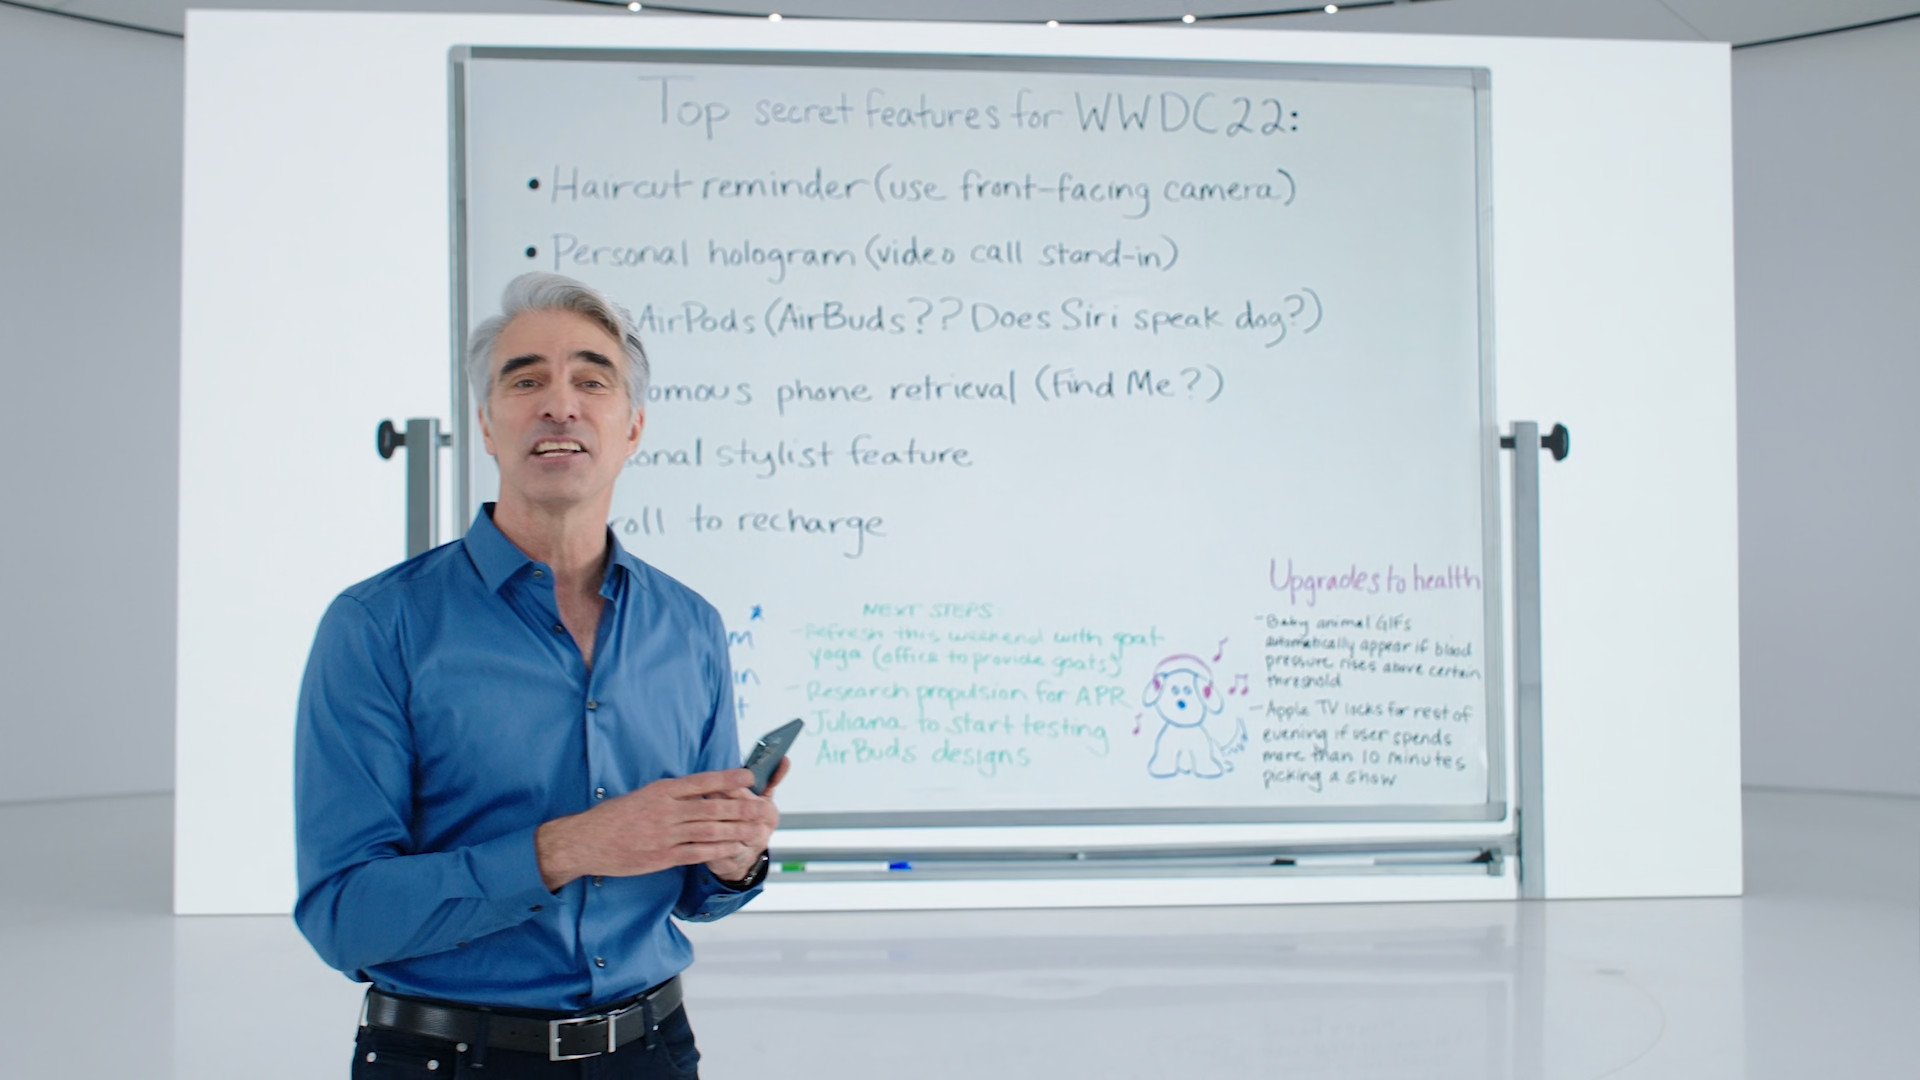 Top secret features for WWDC22:
• Haircut reminder (use front-facing camera)
• Personal hologram (video call stand-in)
AirPods (AirBuds?? Does Siri speak dog?)
omous phone retrieval (Find Me?)
onal stylist feature
roll to recharge
m
in
t
NEXT STEPS
- Refresh this weekend with goat
yoga (office to provide goats)
- Research propulsion for APR
Juliana to start testing
AirBuds designs
Upgrades to health
- Baby animal GIFs
automatically appear if blood
pressure rises above certain
threshold
- Apple TV locks for rest of
evening if user spends
more than 10 minutes
picking a show